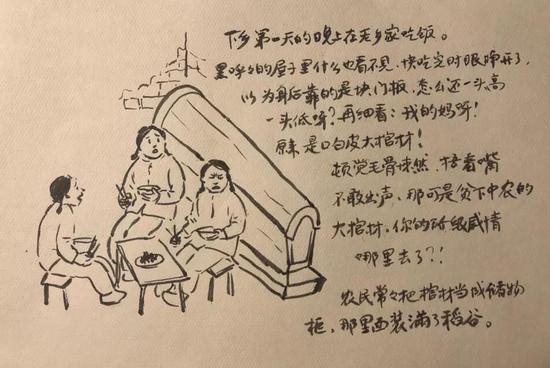 下乡第一天的晚上在老乡家吃饭。
黑呼々的屋子里什么也看不见，快吃完时眼睁开了，
以为身后靠的是块门板，怎么还一头高
一头低呀？再细看：我的妈呀！
原来是口白皮大棺材！
顿觉毛骨悚然，捂着嘴
不敢出声，那可是贫下中农的
大棺材，你的阶级感情
哪里去了？！
农民常々把棺材当成储物
柜，那里面装满了稻谷。